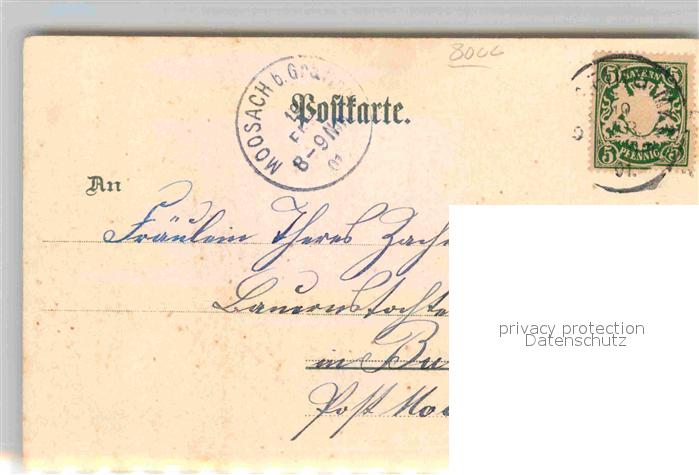 80cc
MOOSACH b. Gra
19 FEB 8-9 N 01
Postkarte.
BAYERN
5 5
5 5
PFENNIG
19
01
An
Fräulein Theres Zach
Bauernstochte
in Bu
Post Moo
privacy protection
Datenschutz